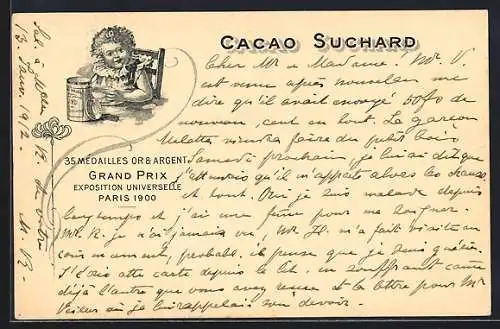 CACAO SUCHARD
35 MEDAILLES OR & ARGENT.
GRAND PRIX
EXPOSITION UNIVERSELLE
PARIS 1900
Cher Mr e Madame! Mr. V.
est venu après nouvelan me
dire qu'il avait envoyé 50 fo de
nouveau, cent en tout. Le garçon
viendra faire du petit bois
Samedi prochain je lui ai dit que
j'attendais qu'il m'apporte alors les chausses
et tout. Oui je suis malade depuis
longtemps et j'ai une pour me soigner.
Mr. R. je n'ai jamais vu, Mr. H. m'a fait visite au
moment, probabl. il pense que je suis
J'écris cette carte depuis le lit, en souffrant comme
déjà l'autre que vous avez reçue et la lettre pour Mr
où je lui rappelais son devoir.